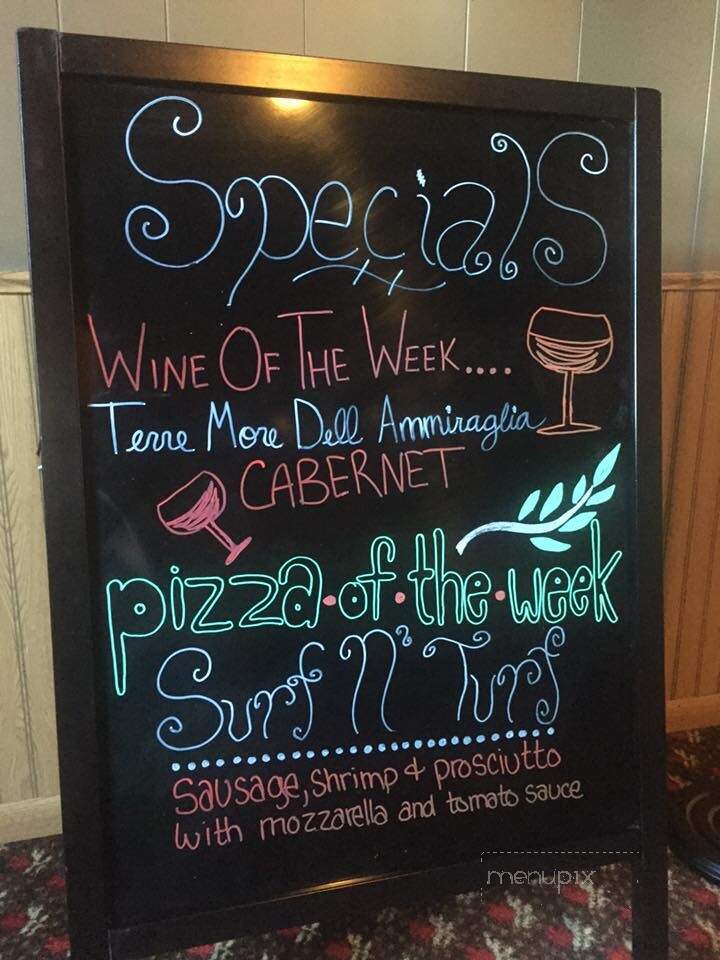 Specials
Wine Of The Week.....
Terre More Dell Ammiraglia
CABERNET
pizza•of•the•week
Surf N' Turf
Sausage, shrimp & prosciutto
with mozzarella and tomato sauce
menupix